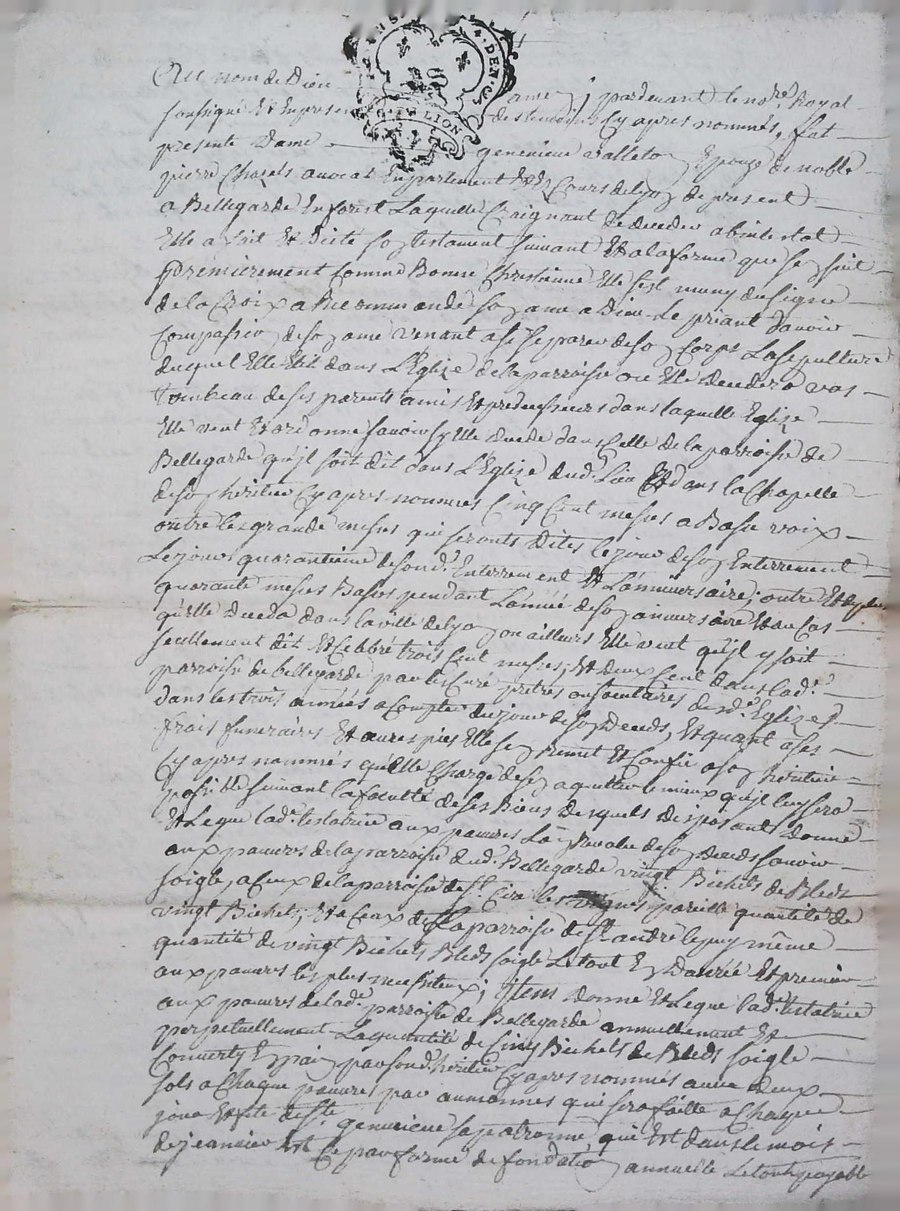 4. DEN.
G. LION
Au nom de Dieu amen; pardevant le no.re Royal
soubsigné Et En presen des temoins Cy apres nommés, fut
presente Dame genevieve valleton Epouze de noble
pierre Chazel avocat En parlement Et Es Cours de lyon de present
a Bellegarde En forest Laquelle Craignant de deceder abintestat
Elle a fait Et dicté son testament suivant Et a la forme que sen suit
Premierement Comme Bonne Chrestienne Elle sest muny du signe
de la Croix a Recommandé son ame a Dieu Le priant d'avoir
Compassion de son ame venant a se separer de son Corps La sepulture
duquel Elle Elit dans L'Eglize de la parroisse ou Elle decedera vas
Tombeau de ses parents amis Et predecesseurs dans laquelle Eglize
Elle veut Et ordonne savoir sy Elle decede dans Celle de la parroisse de
Bellegarde qu'il soit dit dans L'Eglize dud. Lieu Et dans la Chapelle
de son heritier Cy apres nommés Cinq Cent messes a Basse voix
outre les grande messes qui seronts dites le jour de son Enterrement
Le jour quarantieme de sond. Enterrement Et L'anniversaire; outre Et de plus
quarante messes Basses pendant L'année de son anniversaire Et au Cas
qu'elle deceda dans la ville de lyon ou ailleurs Elle veut qu'il y soit
seullement dit Et Celebré trois Cent messes; Et deux Cent dans lad.
parroisse de bellegarde par les Curé pretres ou societaires dud. Eglizes
dans les trois années a Compter du jour de son deceds, Et quant a ses
frais funeraires Et œuvres pies Elle sen remet Et Confie a son heritier
Cy apres nommés qu'elle Charge de sen aquitter le mieux qu'il luy sera
possible suivant la faculté de ses Biens desquels disposant donne
Et Legue lad. testatrice aux pauvres L'an Revolu de son deceds savoir
aux pauvres de la parroisse dud. Bellegarde vingt Bichets de Bleds
soigle, a Ceux de la parroisse de S.t Cire les vignes pareille quantité de
vingt Bichets; Et a Ceux de la parroisse de S.t andré le puy même
quantité de vingt Bichets Bled soigle Le tout En danrée Et premier
aux pauvres les plus necessiteux; Item donne Et Legue lad. testatrice
aux pauvres de lad. parroisse de Bellegarde annuellement Et
perpetuellement La quantité de Cinq Bichets de Bleds soigle
Converty En pain par sond. heritier Cy apres nommés avec deux
sols a Chaque pauvres par aumonnes qui sera faitte a Chaque
jour Et fete de S.te genevieve sa patronne, qui Est dans le mois
de jeanvier Et Ce par forme de fondation annuelle Le tout payable